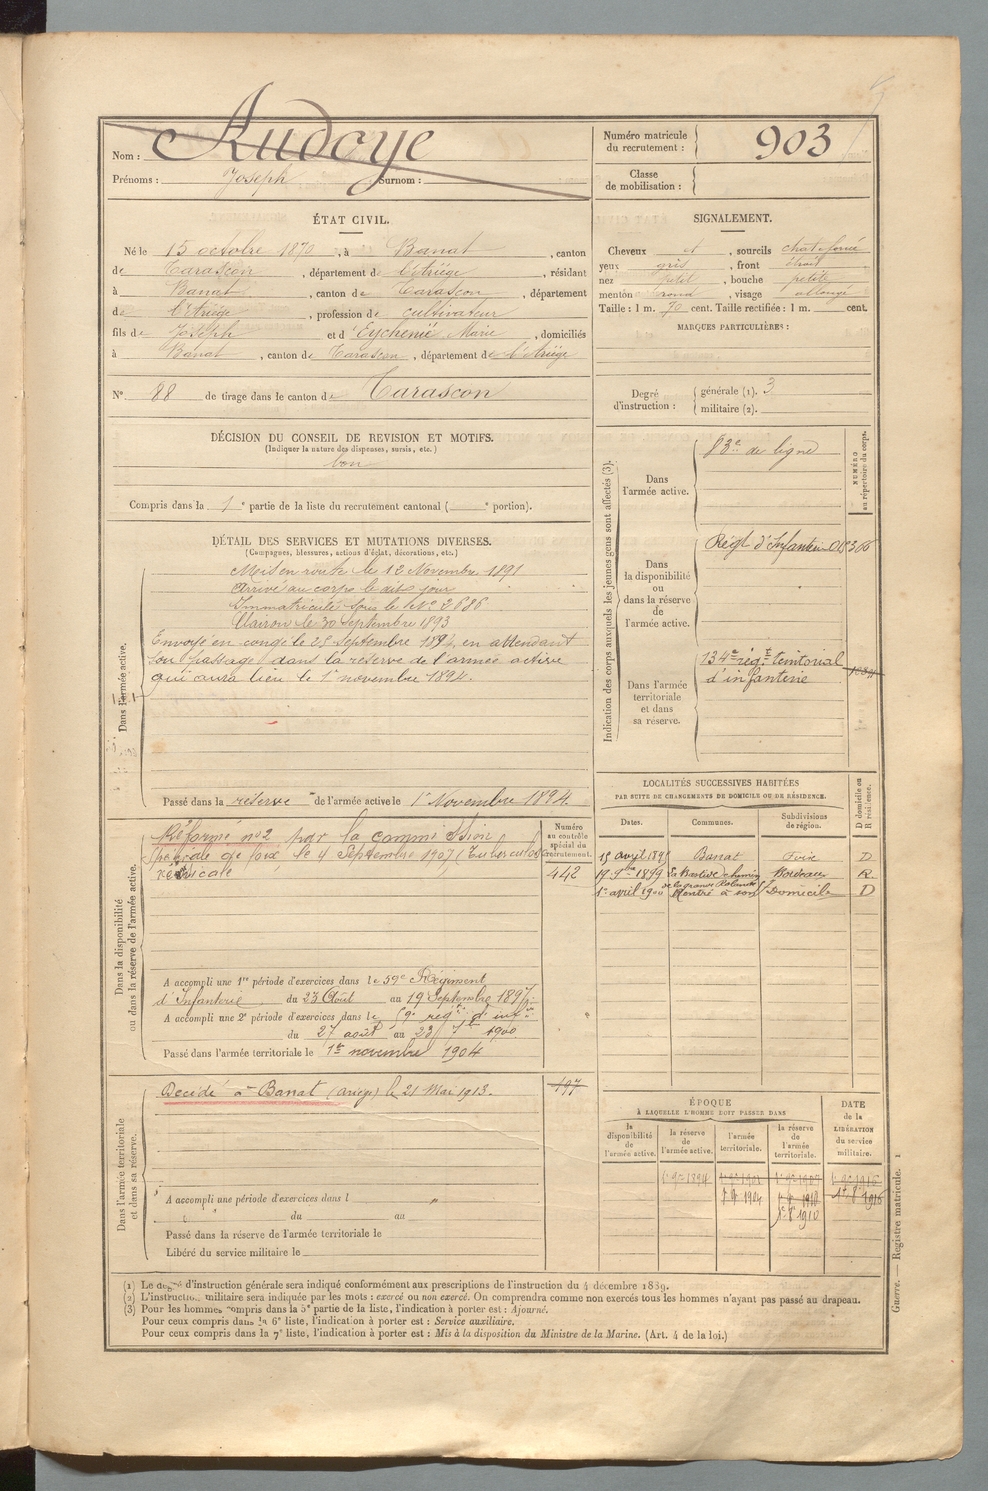 Nom : Audoye
Prénoms : Joseph Surnom :
Numéro matricule
du recrutement : 903
Classe
de mobilisation :
ÉTAT CIVIL.
Né le 15 octobre 1870, à Banat, canton
de Tarascon, département de l'Ariège, résidant
à Banat, canton de Tarascon, département
de l'Ariège, profession de cultivateur
fils de Joseph et d'Eychenié Marie, domiciliés
à Banat, canton de Tarascon, département de l'Ariège
N° 88 de tirage dans le canton de Tarascon
SIGNALEMENT.
Cheveux et, sourcils chat. foncé
yeux gris, front étroit
nez petit, bouche petite
menton rond, visage allongé
Taille : 1 m. 70 cent. Taille rectifiée : 1 m. cent.
MARQUES PARTICULIÈRES :
Degré
d'instruction :
générale (1). 3
militaire (2).
DÉCISION DU CONSEIL DE REVISION ET MOTIFS.
(Indiquer la nature des dispenses, sursis, etc.)
bon
Compris dans la 1e partie de la liste du recrutement cantonal ( e portion).
DÉTAIL DES SERVICES ET MUTATIONS DIVERSES.
(Campagnes, blessures, actions d'éclat, décorations, etc.)
Dans l'armée active.
Mis en route le 12 Novembre 1891
Arrivé au corps le dit jour
Immatriculé sous le N° 2686
Clairon le 30 Septembre 1893
Envoyé en congé le 25 Septembre 1894, en attendant
son passage dans la réserve de l'armée active
qui aura lieu le 1er novembre 1894.
Passé dans la réserve de l'armée active le 1er Novembre 1894.
Indication des corps auxquels les jeunes gens sont affectés (3).
NUMÉRO
au répertoire du corps.
Dans
l'armée active.
83e de ligne
Dans
la disponibilité
ou
dans la réserve
de
l'armée active.
Régt d'Infanterie
Dans l'armée
territoriale
et dans
sa réserve.
134e régt territorial
d'infanterie
Dans la disponibilité
ou dans la réserve de l'armée active.
Numéro
au contrôle
spécial du
recrutement.
442
Réformé n°2 par la commission
spéciale de Foix le 4 Septembre 1907 (Tuberculose
A accompli une 1re période d'exercices dans le 59e Régiment
d'Infanterie du 23 Août au 19 Septembre 1897.
A accompli une 2e période d'exercices dans le 59e régt d'infrie
du 27 août au 23 7bre 1900
Passé dans l'armée territoriale le 1er novembre 1904
LOCALITÉS SUCCESSIVES HABITÉES
PAR SUITE DE CHANGEMENTS DE DOMICILE OU DE RÉSIDENCE.
Dates. Communes. Subdivisions
de région. D domicile ou
R résidence.
15 avril 1895 Banat Foix D
19 9bre 1899 La Bastide chemin Bordeaux R.
1er avril 1900 Rentré à son Domicile D
Dans l'armée territoriale
et dans sa réserve.
Décédé à Banat (Ariège) le 21 Mai 1913.
197
A accompli une période d'exercices dans l
du au
Passé dans la réserve de l'armée territoriale le
Libéré du service militaire le
ÉPOQUE
À LAQUELLE L'HOMME DOIT PASSER DANS
la
disponibilité
de
l'armée active.
la réserve
de
l'armée active.
l'armée
territoriale.
la réserve
de
l'armée
territoriale.
DATE
de la
LIBÉRATION
du service
militaire.
1er 9bre 1894
1er 9bre 1904
1er 8bre 1910
1er 8bre 1916
(1) Le degré d'instruction générale sera indiqué conformément aux prescriptions de l'instruction du 4 décembre 1889.
(2) L'instruction militaire sera indiquée par les mots : exercé ou non exercé. On comprendra comme non exercés tous les hommes n'ayant pas passé au drapeau.
(3) Pour les hommes compris dans la 5e partie de la liste, l'indication à porter est : Ajourné.
Pour ceux compris dans la 6e liste, l'indication à porter est : Service auxiliaire.
Pour ceux compris dans la 7e liste, l'indication à porter est : Mis à la disposition du Ministre de la Marine. (Art. 4 de la loi.)
Guerre. — Registre matricule. 1